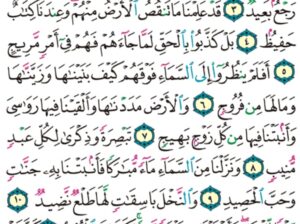 رَجْعٌ بَعِيدٌ ٣ قَدْ عَلِمْنَا مَا تَنقُصُ الْأَرْضُ مِنْهُمْ وَعِندَنَا كِتَابٌ
حَفِيظٌ ٤ بَلْ كَذَّبُوا بِالْحَقِّ لَمَّا جَاءَهُمْ فَهُمْ فِي أَمْرٍ مَّرِيجٍ
٥ أَفَلَمْ يَنظُرُوا إِلَى السَّمَاءِ فَوْقَهُمْ كَيْفَ بَنَيْنَاهَا وَزَيَّنَّاهَا
وَمَا لَهَا مِن فُرُوجٍ ٦ وَالْأَرْضَ مَدَدْنَاهَا وَأَلْقَيْنَا فِيهَا رَوَاسِيَ
وَأَنبَتْنَا فِيهَا مِن كُلِّ زَوْجٍ بَهِيجٍ ٧ تَبْصِرَةً وَذِكْرَىٰ لِكُلِّ عَبْدٍ
مُّنِيبٍ ٨ وَنَزَّلْنَا مِنَ السَّمَاءِ مَاءً مُّبَارَكًا فَأَنبَتْنَا بِهِ جَنَّاتٍ
وَحَبَّ الْحَصِيدِ ٩ وَالنَّخْلَ بَاسِقَاتٍ لَّهَا طَلْعٌ نَّضِيدٌ ١٠